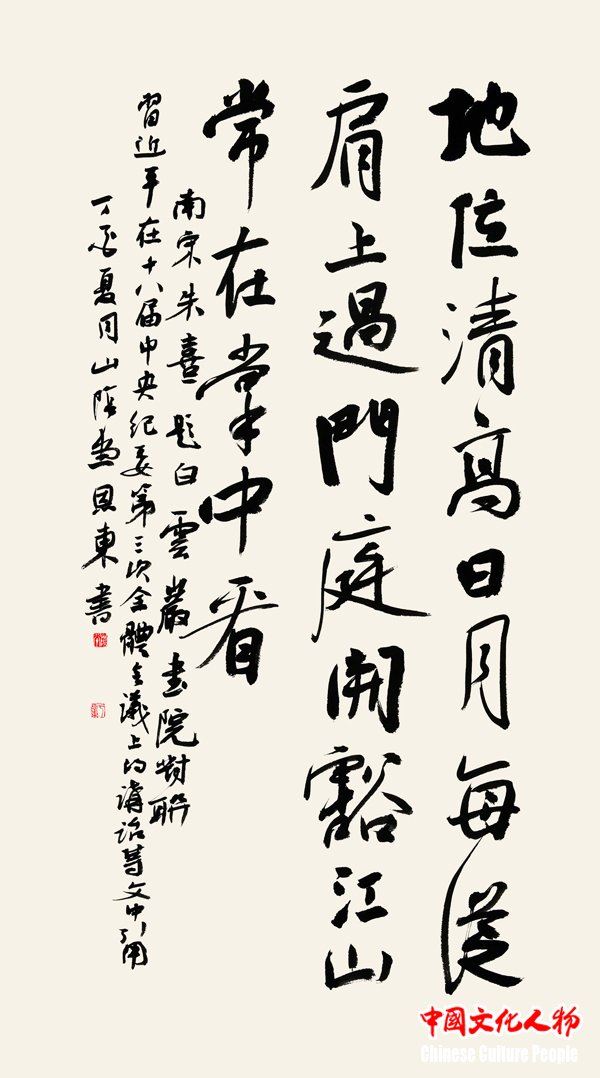 地位清高日月每從
肩上過門庭開豁江山
常在掌中看
南宋朱熹题白雲巖書院對聯
習近平在十八届中央纪委第三次全體会議上的講话等文中引用
丁酉夏月山陰東書
中國文化人物
Chinese Culture People